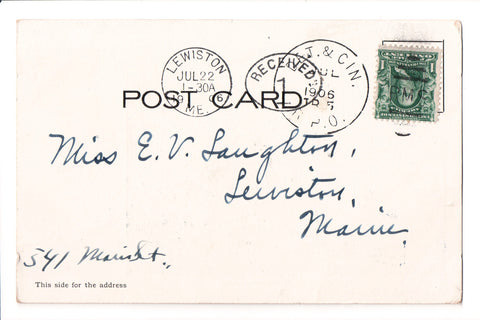 LEWISTON
JUL 22
1-30A
ME.
RECEIVED
1
J. & CIN.
JUL
1906
R.P.O.
1
POST CARD
Miss E. V. Laughton,
Lewiston,
Maine.
541 Main St.,
This side for the address